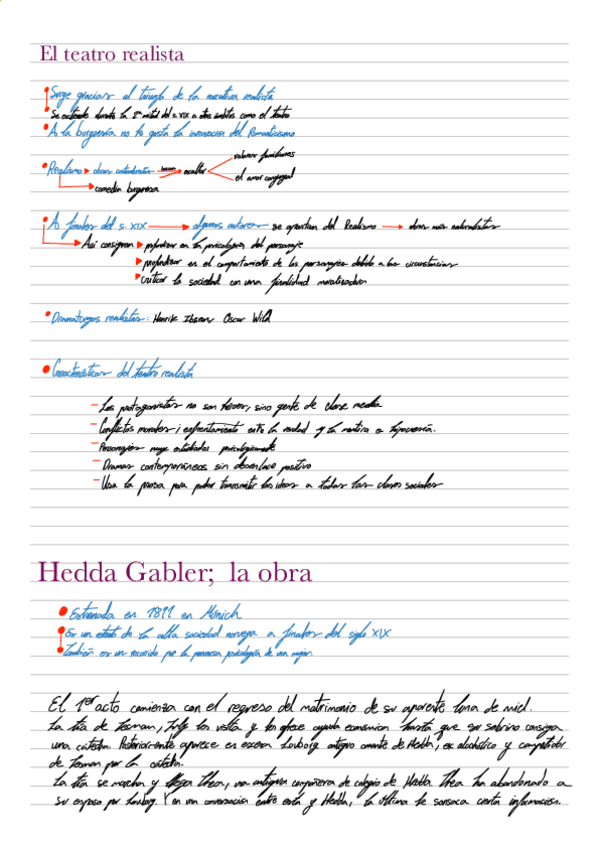 El teatro realista
Surge gracias al triunfo de la narrativa realista
Se extiende durante la 2ª mitad del s. XIX a otros ámbitos como el teatro
A la burguesía no le gusta la innovación del Romanticismo
valores familiares
Realismo obras costumbristas buscan exaltar
el amor conyugal
comedia burguesa
A finales del s. XIX algunos autores se apartan del Realismo obras más naturalistas
Así consiguen profundizar en la psicología del personaje
profundizar en el comportamiento de los personajes debido a las circunstancias
criticar la sociedad con una finalidad moralizadora
Dramaturgos realistas: Henrik Ibsen Oscar Wild
Características del teatro realista
- Los protagonistas no son héroes, sino gente de clase media
- Conflictos morales; enfrentamiento entre la verdad y la mentira o hipocresía.
- Personajes muy estudiados psicológicamente
- Dramas contemporáneos sin desenlace positivo
- Usa la prosa para poder transmitir las ideas a todas las clases sociales
Hedda Gabler; la obra
Estrenada en 1891 en Múnich
Es un retrato de la alta sociedad noruega a finales del siglo XIX
También es un recorrido por la psicología de una mujer
El 1er acto comienza con el regreso del matrimonio de su aparente luna de miel.
La tía de Tesman, July los visita y les ofrece ayuda económica hasta que su sobrino consiga
una cátedra. Posteriormente aparece en escena Lovborg antiguo amante de Hedda, ex alcohólico y competidor
de Tesman por la cátedra.
La tía se marcha y llega Thea, una antigua compañera de colegio de Hedda. Thea ha abandonado a
su esposo por Lovborg. Y en una conversación entre esta y Hedda, la última le sonsaca cierta información.